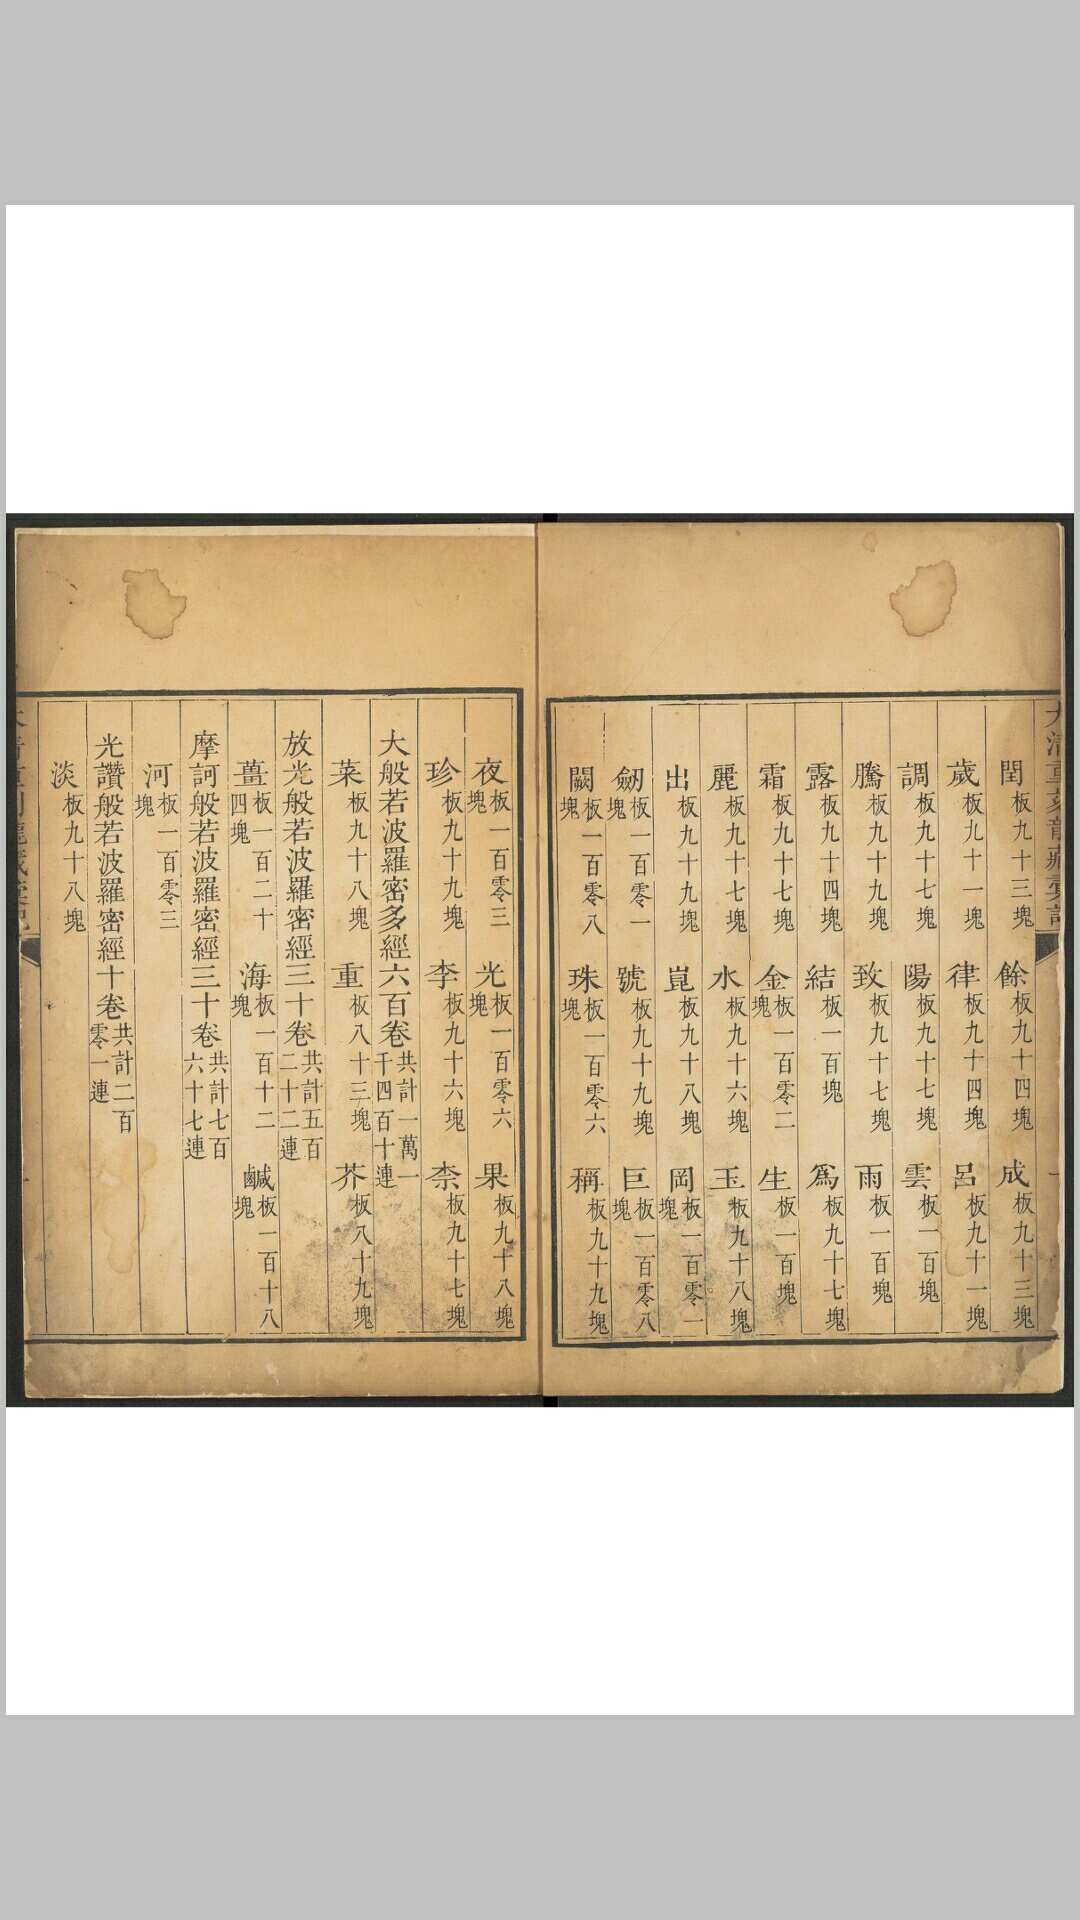 大清重刻龍藏彙記
閏板九十三塊 餘板九十四塊 成板九十三塊
歲板九十一塊 律板九十四塊 呂板九十一塊
調板九十七塊 陽板九十七塊 雲板一百塊
騰板九十七塊 致板九十七塊 雨板一百塊
露板九十四塊 結板一百塊 爲板九十七塊
霜板九十七塊 金板一百零二塊 生板一百塊
麗板九十七塊 水板九十六塊 玉板九十八塊
出板九十九塊 崑板九十八塊 岡板一百零一塊
劒板一百零一塊 號板九十九塊 巨板一百零八塊
闕板一百零八塊 珠板一百零六塊 稱板九十九塊
夜板一百零三塊 光板一百零六塊 果板九十八塊
珍板九十九塊 李板九十六塊 柰板九十七塊
大般若波羅密多經六百卷共計一萬一千四百十連
菜板九十八塊 重板八十三塊 芥板八十九塊
放光般若波羅密經三十卷共計五百二十二連
薑板一百二十四塊 海板一百十二塊 鹹板一百十八塊
摩訶般若波羅密經三十卷共計七百六十七連
河板一百零三塊
光讚般若波羅密經十卷共計二百零一連
淡板九十八塊